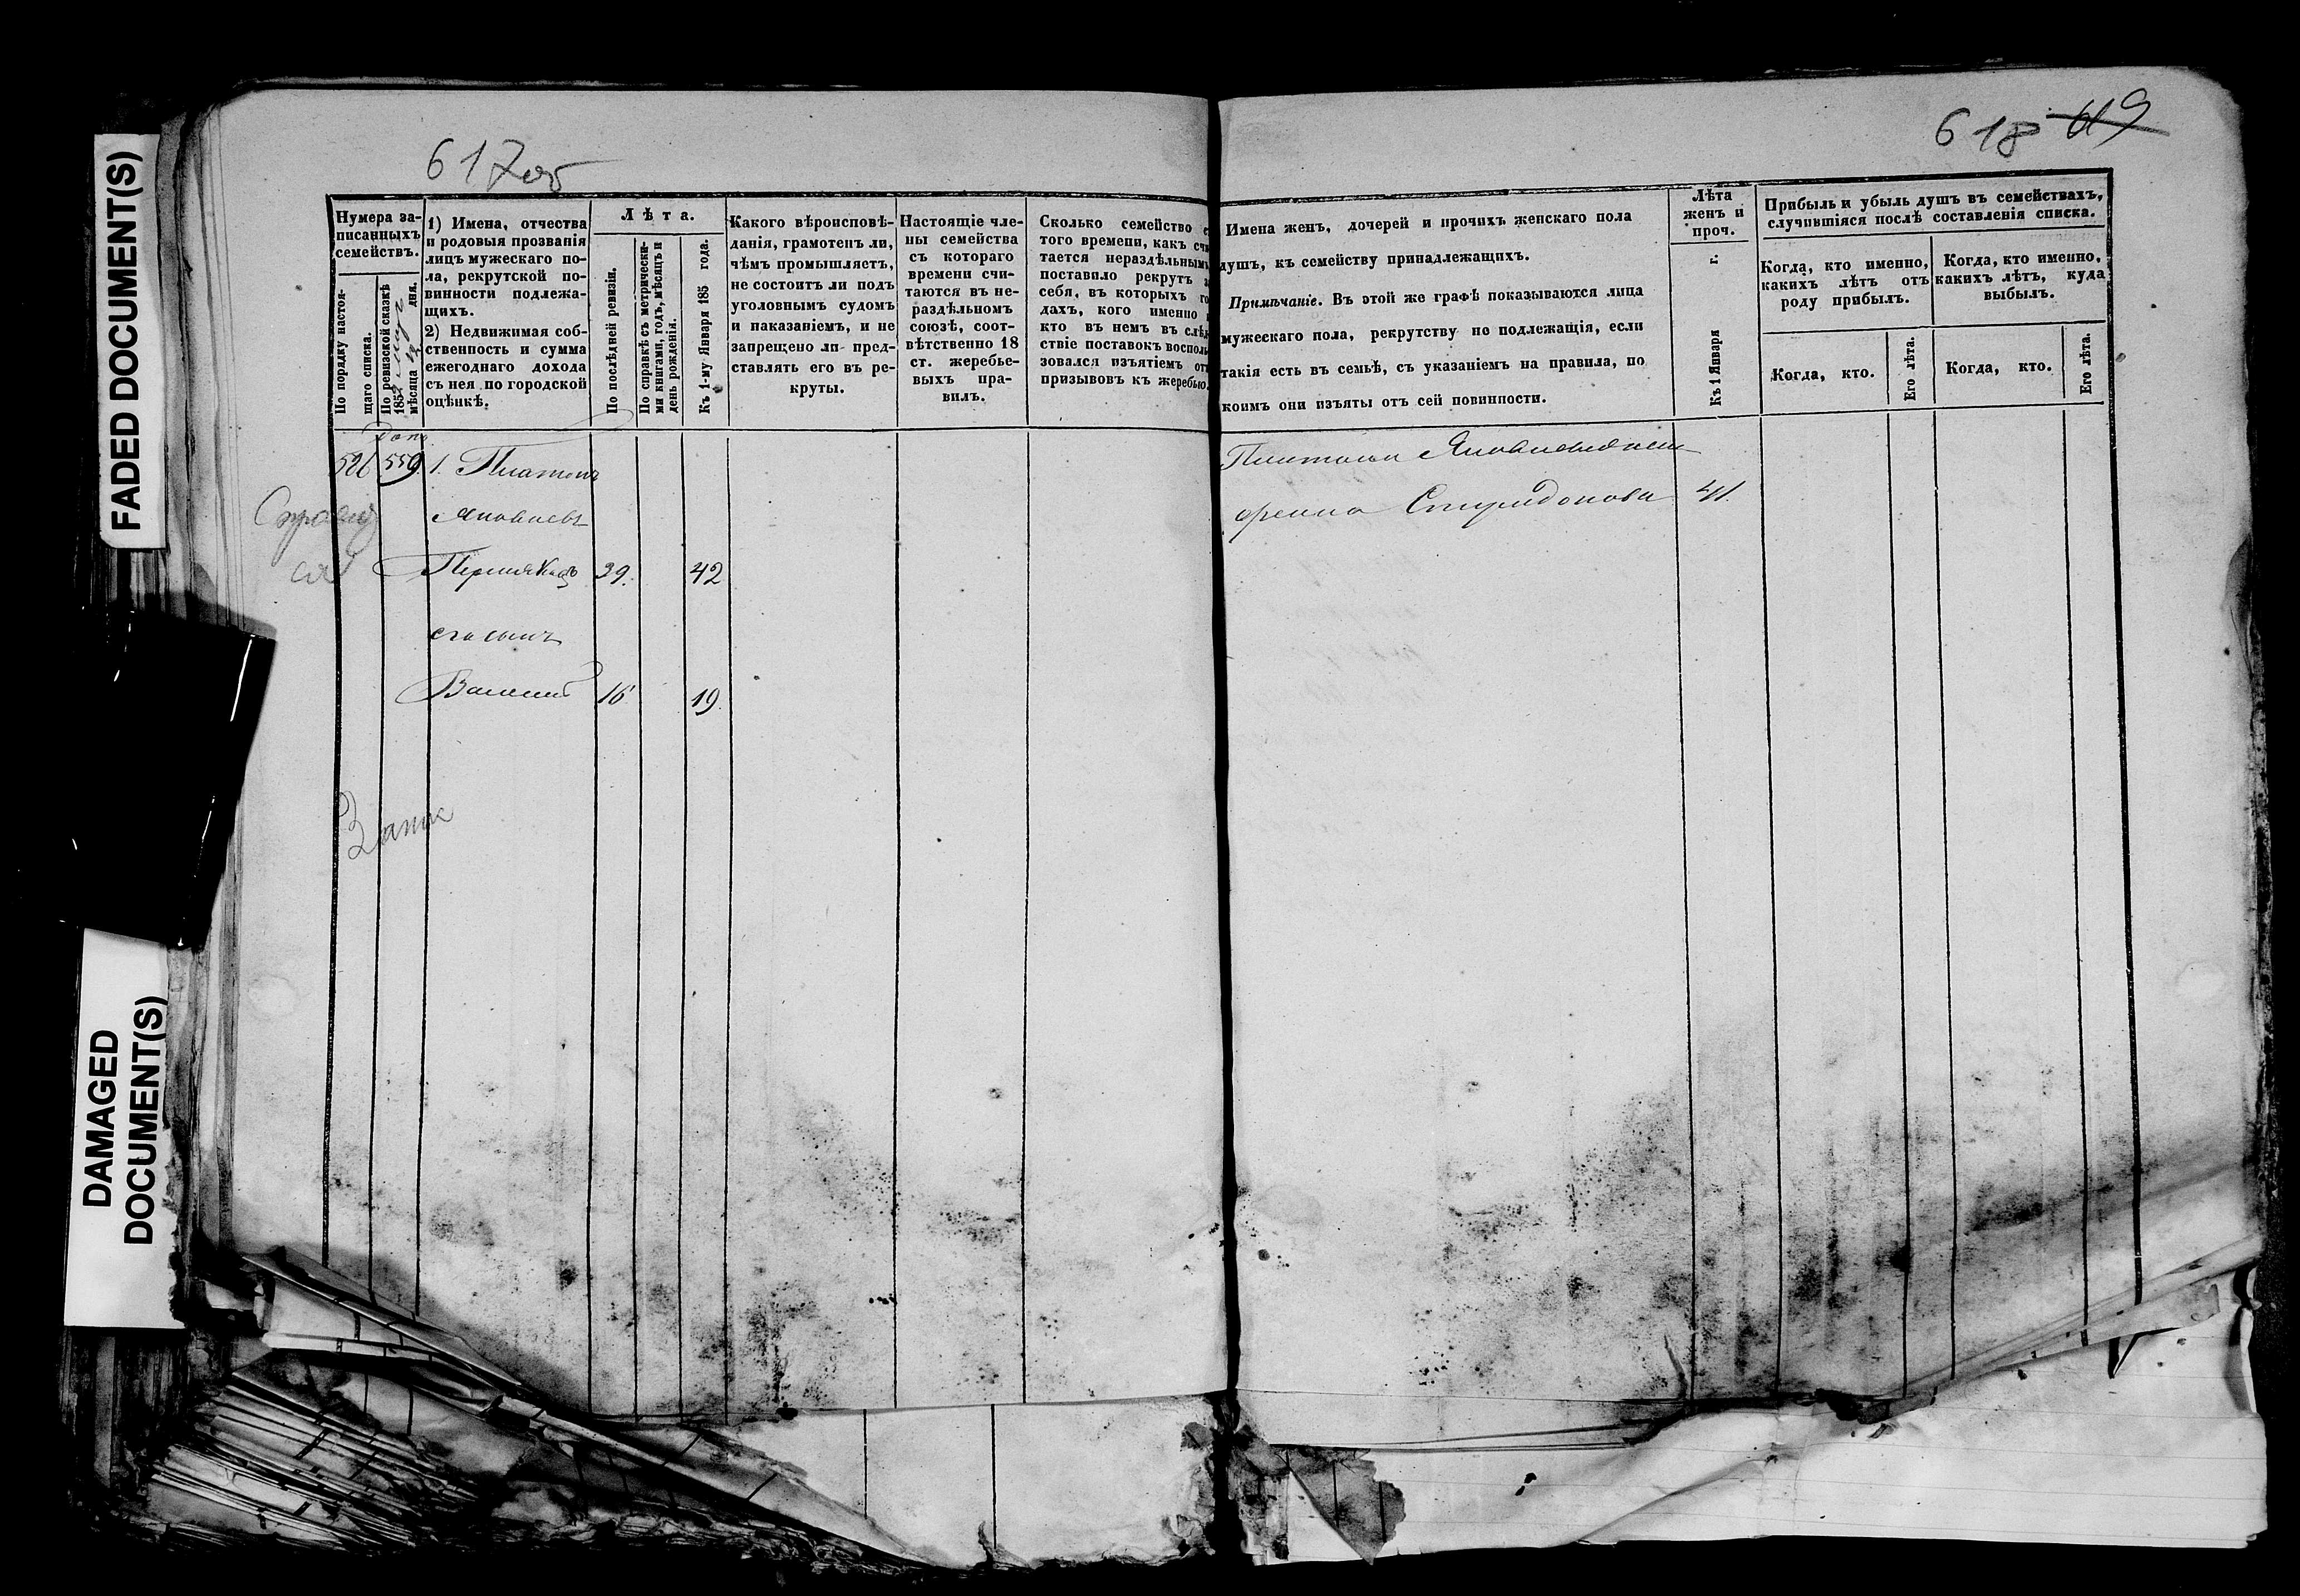 FADED DOCUMENT(S)
DAMAGED
DOCUMENT(S)
617об
618 619
Нумера за-
писанныхъ
семействъ.
По порядку настоя-
щаго списка.
По ревизской сказкѣ
185
мѣсяца дня.
1) Имена, отчества
и родовыя прозванія
лицъ мужескаго по-
ла, рекрутской по-
винности подлежа-
щихъ.
2) Недвижимая соб-
ственность и сумма
ежегоднаго дохода
съ нея по городской
оцѣнкѣ.
Лѣта.
По послѣдней ревизіи.
По справкѣ съ метрически-
ми книгами, годъ, мѣсяцъ и
день рожденія.
Къ 1-му Января 185 года.
Какого вѣроисповѣ-
данія, грамотенъ ли,
чѣмъ промышляетъ,
не состоитъ ли подъ
уголовнымъ судомъ
и наказаніемъ, и не
запрещено ли пред-
ставлять его въ ре-
круты.
Настоящіе чле-
ны семейства
съ котораго
времени счи-
таются въ не-
раздѣльномъ
союзѣ, соот-
вѣтственно 18
ст. жеребье-
выхъ пра-
вилъ.
Сколько семейство с
того времени, какъ счи
тается нераздѣльнымъ
поставило рекрутъ з
себя, въ которыхъ го
дахъ, кого именно и
кто въ немъ въ слѣд
ствіе поставокъ восполь
зовался изъятіемъ отъ
призывовъ къ жеребью.
Имена женъ, дочерей и прочихъ женскаго пола
душъ, къ семейству принадлежащихъ.
Примѣчаніе. Въ этой же графѣ показываются лица
мужескаго пола, рекрутству не подлежащія, если
такія есть въ семьѣ, съ указаніемъ на правила, по
коимъ они изъяты отъ сей повинности.
Лѣта
женъ и
проч.
Къ 1 Января г.
Прибыль и убыль душъ въ семействахъ,
случившіяся послѣ составленія списка.
Когда, кто именно,
какихъ лѣтъ отъ
роду прибылъ.
Когда, кто именно,
какихъ лѣтъ, куда
выбылъ.
Когда, кто.
Его лѣта.
Когда, кто.
Его лѣта.
доп.
526 559 1. Платонъ
Яковлевъ
Пермяковъ 39. 42
его сынъ
Василий 16 19
Платона Яковлева жена
Спиридонова 41.